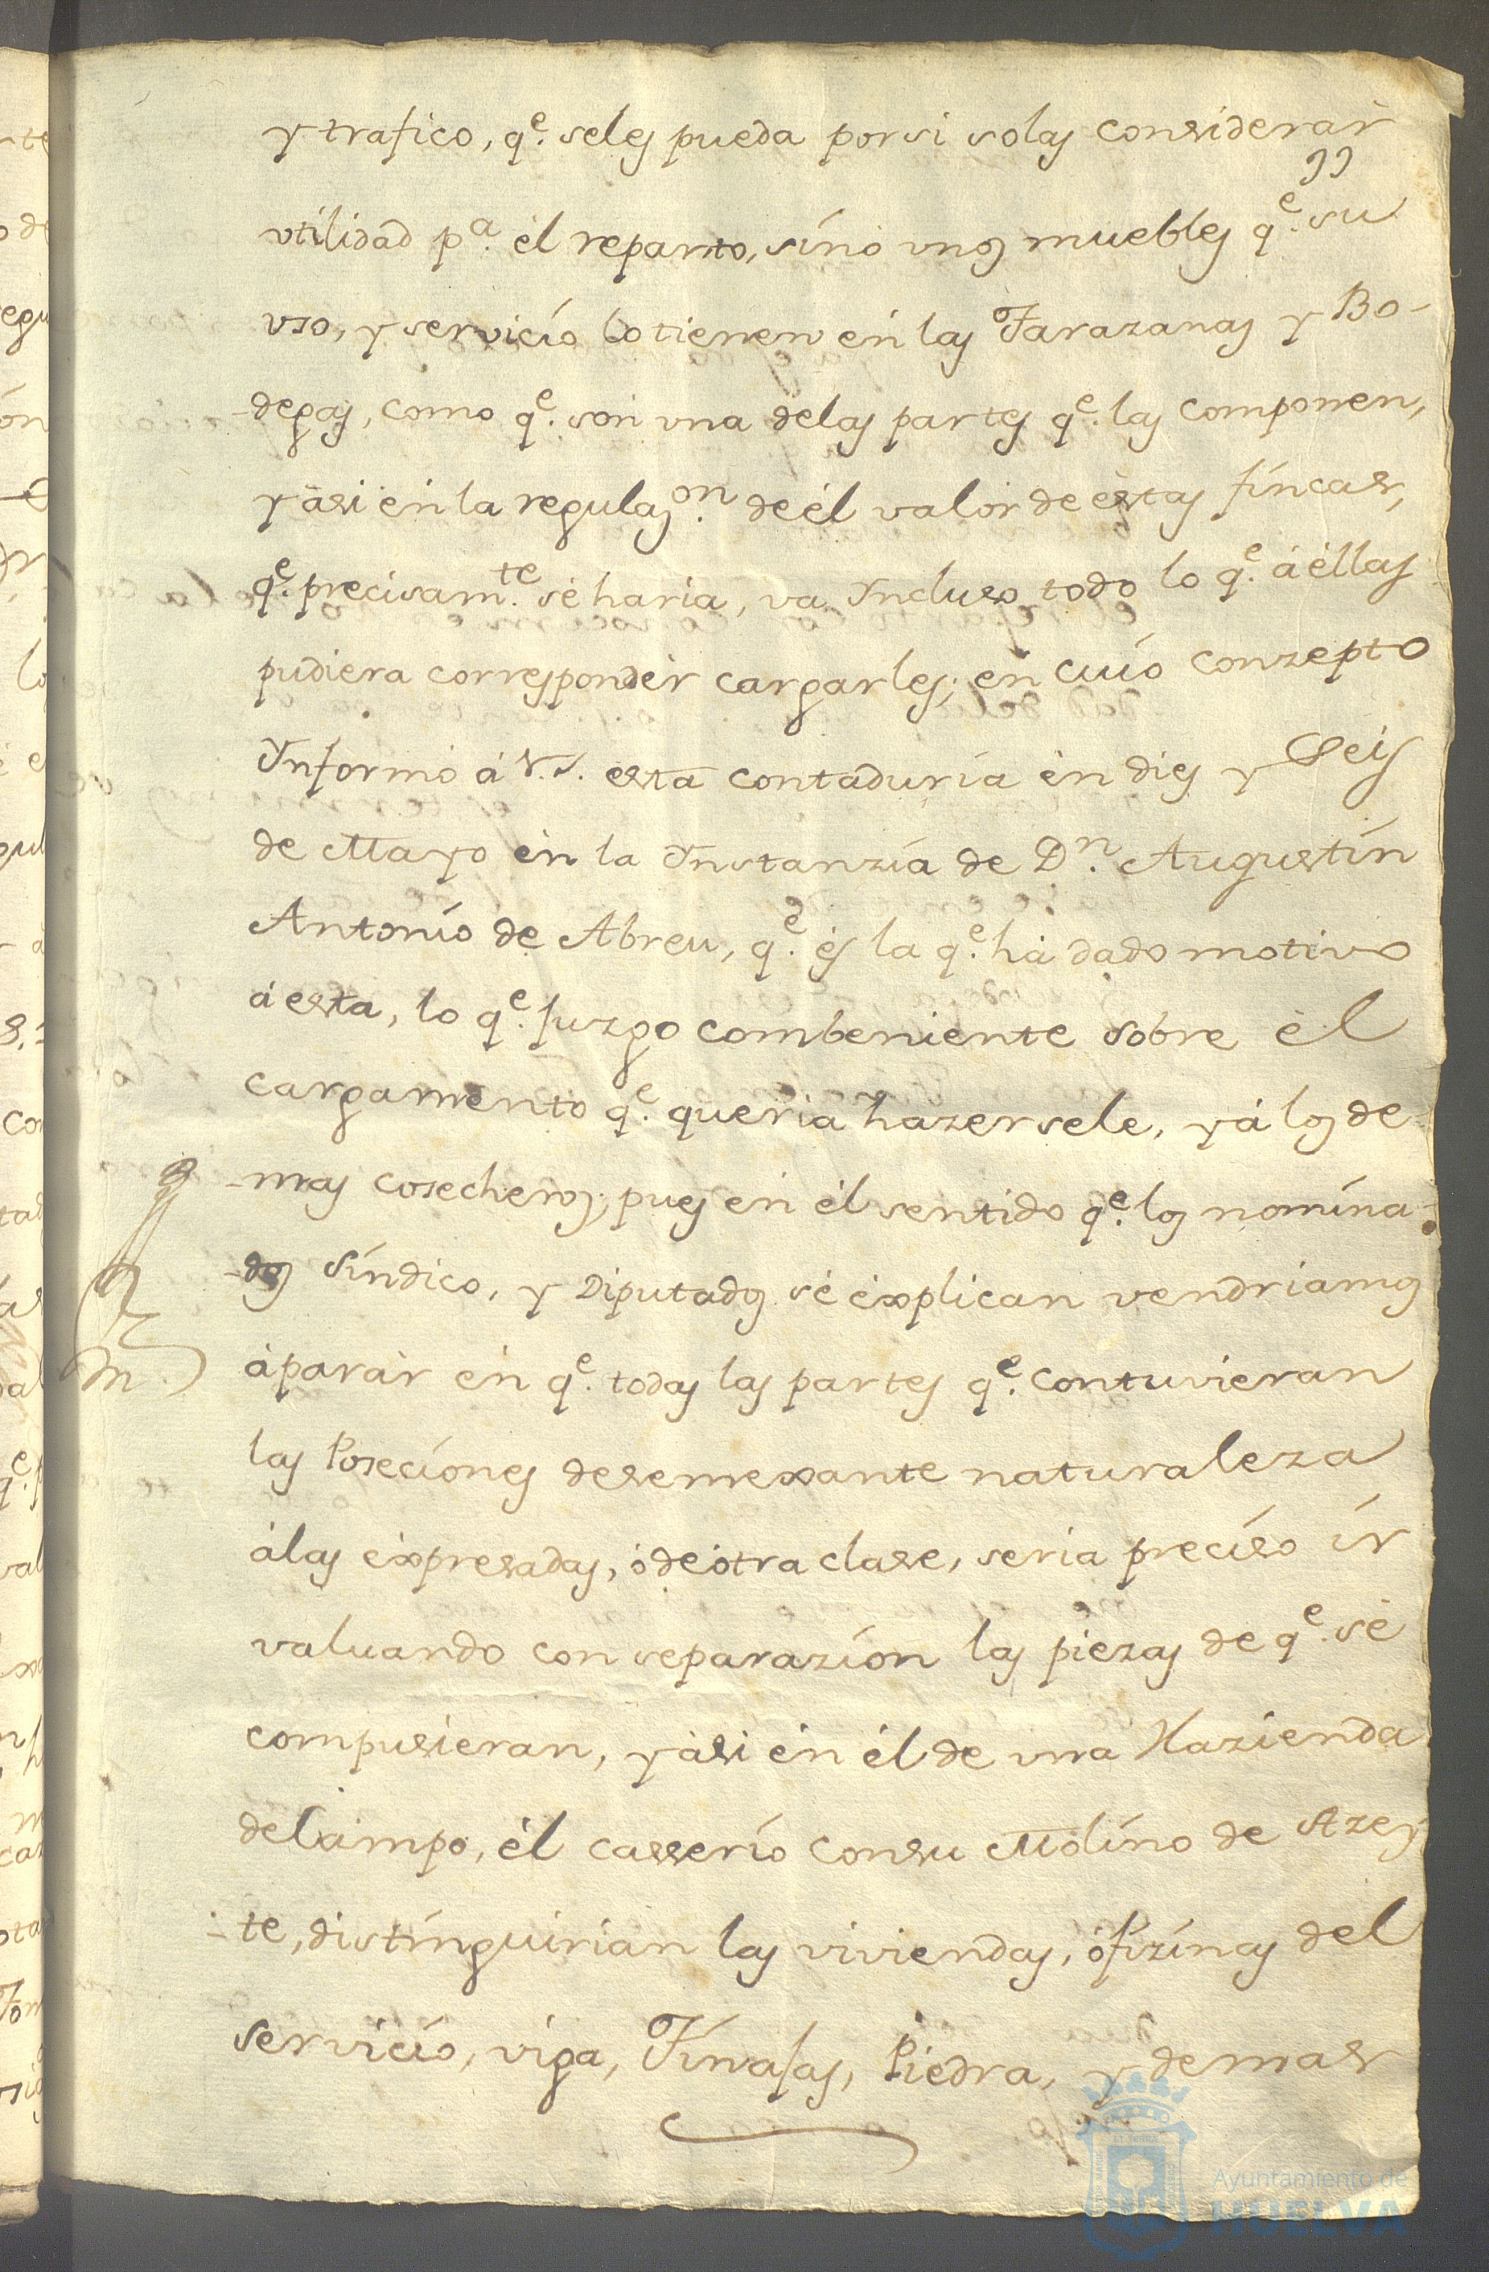 y trafico, q^e. seles pueda por si solas considerar
99
vtilidad p^a. èl reparto, sinó vnos muebles q^e. su
vso, y servicío lo tienen èn las Tarazanas y Bo-
-degas, como q^e. son vna delas partes q^e. las componen,
y àsi èn la regulaz^on. de èl valòr de èstas fincas,
q^e. precisam^te. sè haria, va Yncluso todo lo q^e. à èllas
pudiera correspondèr cargarles; en cuio conzepto
Ynformò à V.S. esta contaduría èn dies y Seis
de Mayo èn la Ynstanzia de D^n. Augustín
Antonío de Abreu, q^e. ès la q^e. hà dado motivo
à esta, lo q^e. Juzgo combeniente sobre èl
cargamento q^e. queria hazersele, y à los de-
-mas cosecheros; pues èn èl sentido q^e. los nomína-
-dos Síndico, y Diputados sè èxplican vendriamos
àparàr èn q^e. todas las partes q^e. contuvieran
las Poseciones desemexante naturaleza
àlas èxpresadas, ò de òtra clase, seria preciso ir
valuando con separazion las piezas de q^e. sè
compusieran, y àsi èn èl de vna Hazienda
deCampo, èl casserío consu Molíno de Azey-
-te, distinguirian las viviendas, òfizinas del
servicío, viga, Tinajas, Piedra, y demas
Ayuntamiento de
HUELVA